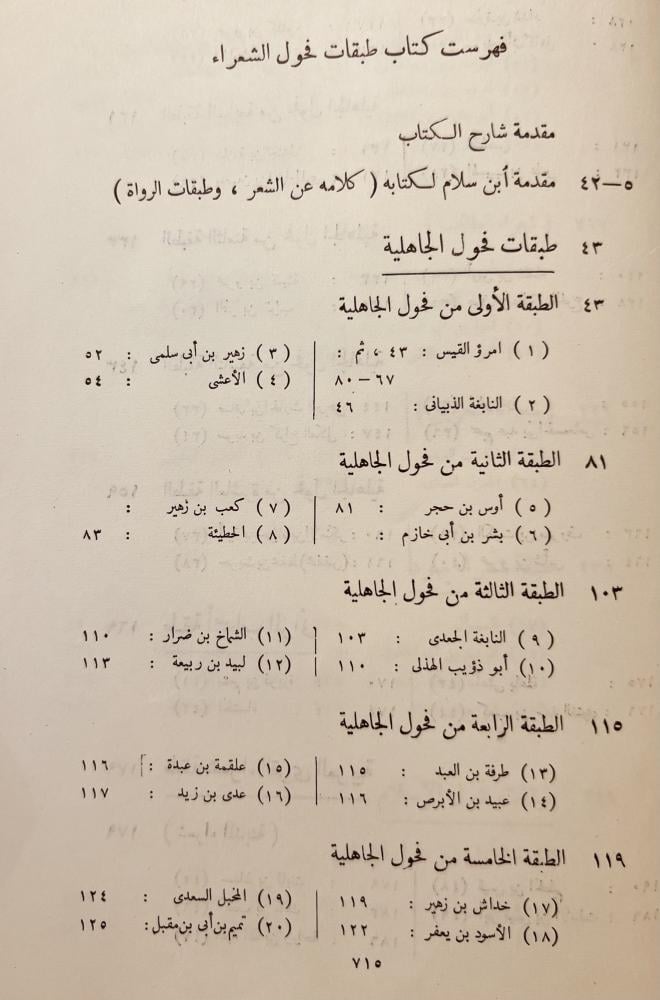 فهرست كتاب طبقات فحول الشعراء
مقدمة شارح الكتاب
٥–٤٢ مقدمة أبن سلام لكتابه ( كلامه عن الشعر ، وطبقات الرواة )
٤٣ طبقات فحول الجاهلية
٤٣ الطبقة الأولى من فحول الجاهلية
( ١ ) امرؤ القيس : ٤٣ ، ثم :
٦٧ – ٨٠
( ٢ ) النابغة الذبيانى : ٤٦
( ٣ ) زهير بن أبى سلمى : ٥٢
( ٤ ) الأعشى : ٥٤
٨١ الطبقة الثانية من فحول الجاهلية
( ٥ ) أوس بن حجر : ٨١
( ٦ ) بشر بن أبى خازم :
( ٧ ) كعب بن زهير :
( ٨ ) الحطيئة : ٨٣
١٠٣ الطبقة الثالثة من فحول الجاهلية
( ٩ ) النابغة الجعدى : ١٠٣
(١٠) أبو ذؤيب الهذلى : ١١٠
(١١) الشماخ بن ضرار : ١١٠
(١٢) لبيد بن ربيعة : ١١٣
١١٥ الطبقة الرابعة من فحول الجاهلية
(١٣) طرفة بن العبد : ١١٥
(١٤) عبيد بن الأبرص : ١١٦
(١٥) علقمة بن عبدة : ١١٦
(١٦) عدى بن زيد : ١١٧
١١٩ الطبقة الخامسة من فحول الجاهلية
(١٧) خداش بن زهير : ١١٩
(١٨) الأسود بن يعفر : ١٢٢
(١٩) المخبل السعدى : ١٢٤
(٢٠) تميم بن أبى بن مقبل : ١٢٥
٧١٥